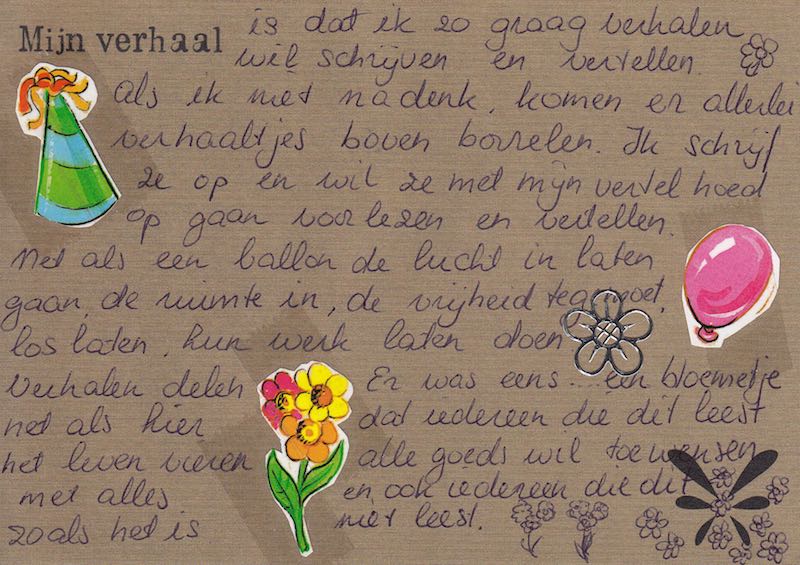 Mijn verhaal is dat ik zo graag verhalen
wil schrijven en vertellen.
Als ik niet nadenk, komen er allerlei
verhaaltjes boven borrelen. Ik schrijf
ze op en wil ze met mijn vertel hoed
op gaan voorlezen en vertellen.
Net als een ballon de lucht in laten
gaan, de ruimte in, de vrijheid tegemoet,
los laten, hun werk laten doen
verhalen delen
net als hier
het leven vieren
met alles
zoals het is
Er was eens .... een bloemetje
dat iedereen die dit leest
alle goeds wil toewensen
en ook iedereen die dit
niet leest.